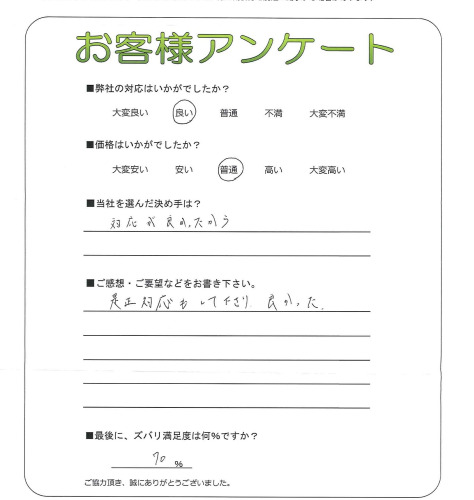 お客様アンケート
■弊社の対応はいかがでしたか？
大変良い 良い 普通 不満 大変不満
■価格はいかがでしたか？
大変安い 安い 普通 高い 大変高い
■当社を選んだ決め手は？
対応が良かったから
■ご感想・ご要望などをお書き下さい。
是正対応もして下さり 良かった.
■最後に、ズバリ満足度は何%ですか？
70 %
ご協力頂き、誠にありがとうございました。